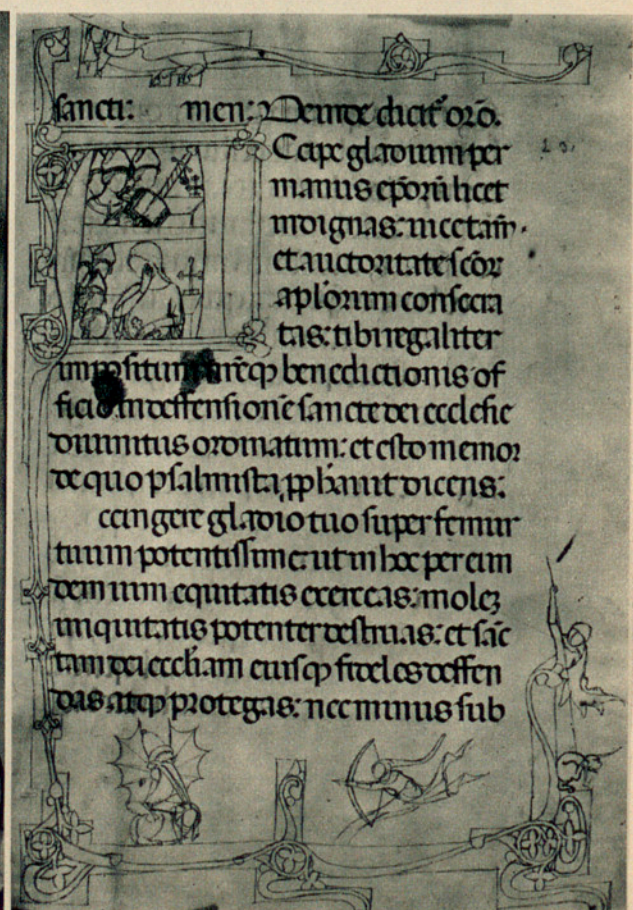 sancti: men: Deinde dicit oro.
Cape gladium per
manus eporum licet
indignas: nicetam
et auctoritate scor
aplorum consecra
tas: tibi regaliter
impositum benedictionis of
ficio in deffensione sancte dei ecclesie
diuinitus ordinatum: et esto memor
de quo psalmista pphauit dicens:
ccingere gladio tuo super femur
tuum potentissime: ut in hoc per eun
dem uim equitatis exerceas: molez
iniquitatis potenter destruas: et sac
tam dei eccliam eiusq fideles deffen
das atq protegas: nec minus sub